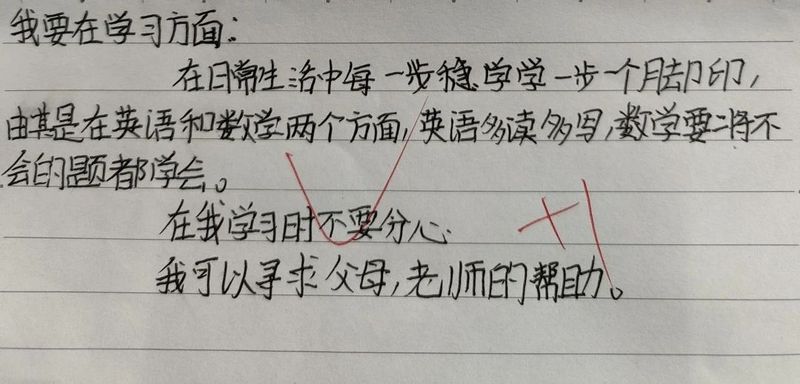 我要在学习方面:
在日常生活中每一步稳学学一步一个月却印,
由其是在英语和数学两个方面,英语多读多写,数学要将不
会的题都学会。
在我学习时不要分心.
我可以寻求父母,老师的帮助。
+1